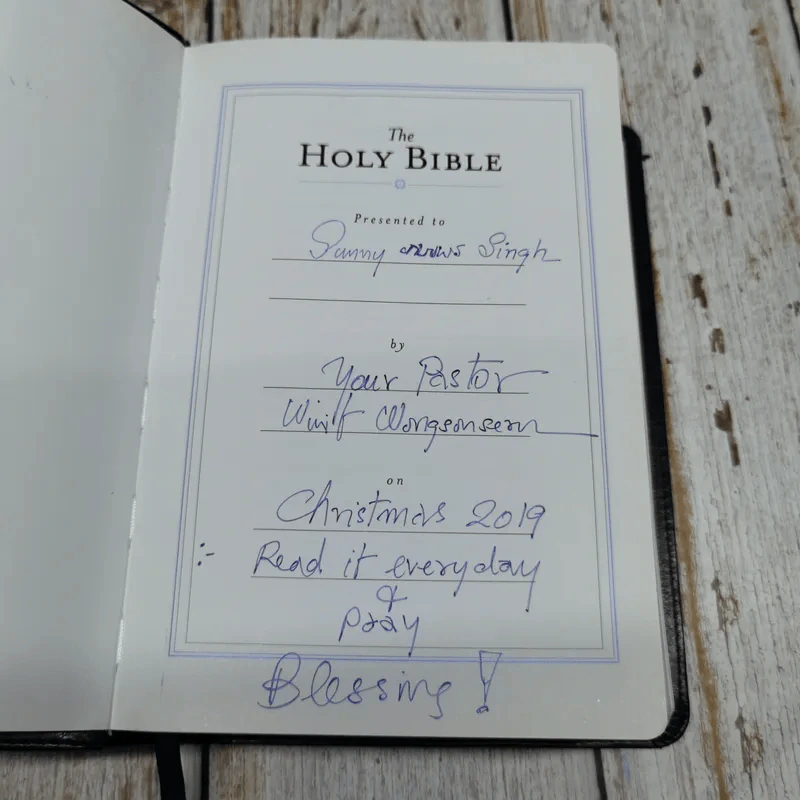 The
HOLY BIBLE
Presented to
Sunny Singh
by
Your Pastor
Wongsonsern
on
Christmas 2019
:- Read it everyday
&
pray
Blessing!